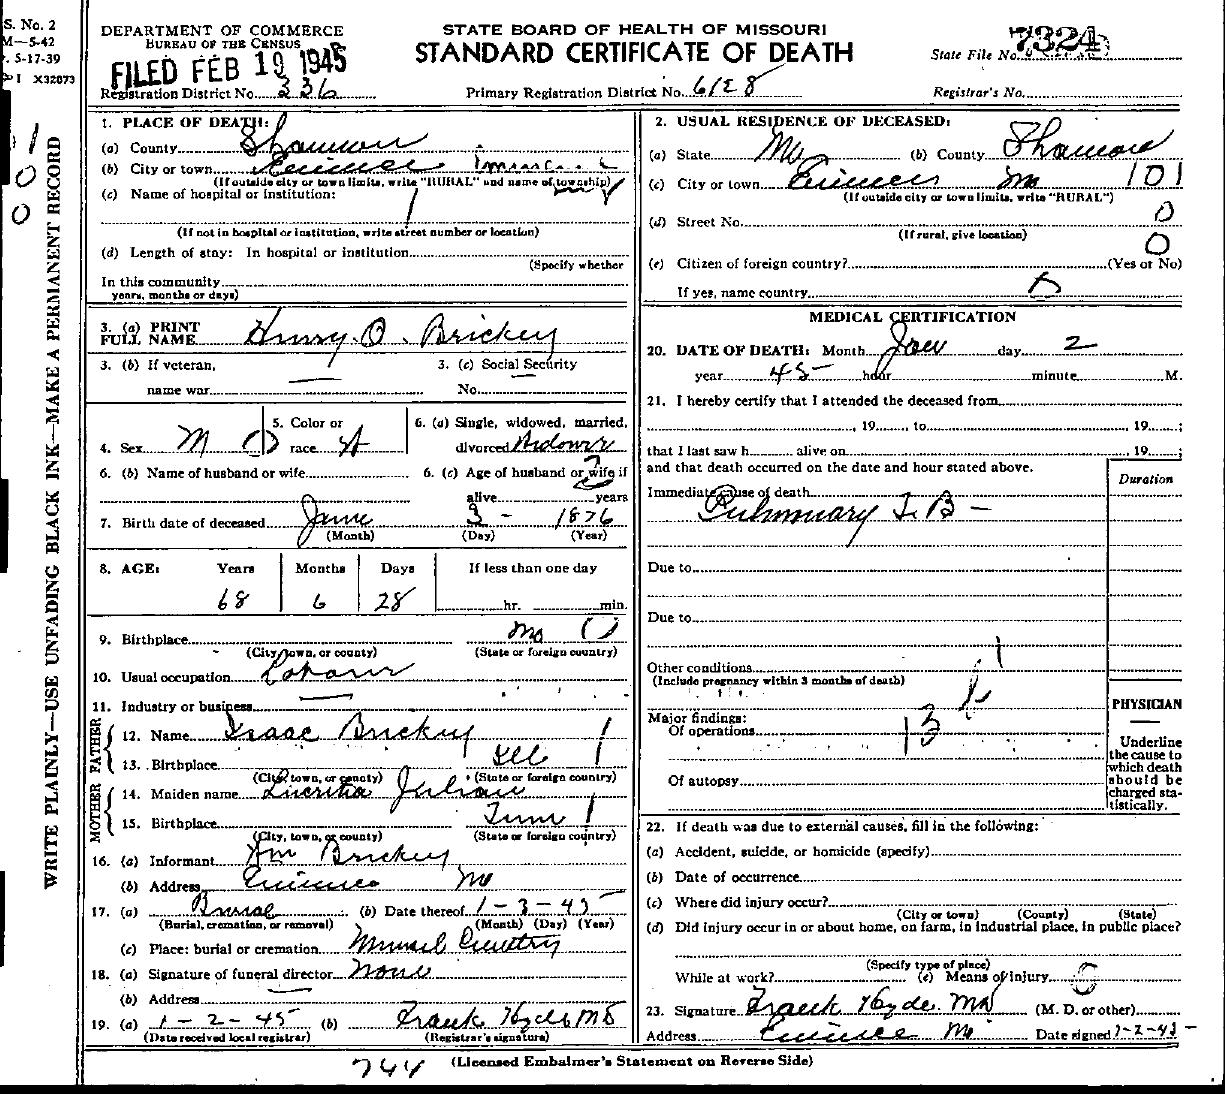 S. No. 2
M—5-42
. 5-17-39
I X32873
WRITE PLAINLY—USE UNFADING BLACK INK—MAKE A PERMANENT RECORD
DEPARTMENT OF COMMERCE
BUREAU OF THE CENSUS
FILED FEB 19 1945
Registration District No. 336
STATE BOARD OF HEALTH OF MISSOURI
STANDARD CERTIFICATE OF DEATH
Primary Registration District No. 6128
State File No. 7324
Registrar's No.
1. PLACE OF DEATH:
(a) County Shannon
(b) City or town Eminence
(If outside city or town limits, write "RURAL" and name of township)
(c) Name of hospital or institution:
(If not in hospital or institution, write street number or location)
(d) Length of stay: In hospital or institution
(Specify whether
In this community
years, months or days)
2. USUAL RESIDENCE OF DECEASED:
(a) State Mo (b) County Shannon
(c) City or town Eminence Mo 101
(If outside city or town limits, write "RURAL")
(d) Street No. 0
(If rural, give location)
0
(e) Citizen of foreign country? (Yes or No)
If yes, name country
3. (a) PRINT FULL NAME Henry O. Brickey
3. (b) If veteran, name war —
3. (c) Social Security No. —
4. Sex M
5. Color or race W
6. (a) Single, widowed, married, divorced Widower
6. (b) Name of husband or wife
6. (c) Age of husband or wife if alive years
7. Birth date of deceased June 3 - 1876
(Month) (Day) (Year)
8. AGE: Years Months Days If less than one day
68 6 28 hr. min.
9. Birthplace Mo
(City, town, or county) (State or foreign country)
10. Usual occupation
11. Industry or business —
FATHER
12. Name Isaac Brickey
13. Birthplace Ill
(City, town, or county) (State or foreign country)
MOTHER
14. Maiden name Lucritia Julian
15. Birthplace Tenn
(City, town, or county) (State or foreign country)
16. (a) Informant Wm Brickey
(b) Address Eminence Mo
17. (a) Burial (b) Date thereof 1-3-45
(Burial, cremation, or removal) (Month) (Day) (Year)
(c) Place: burial or cremation
18. (a) Signature of funeral director None
(b) Address —
19. (a) 1-2-45 (b) Frank Hyde MD
(Date received local registrar) (Registrar's signature)
MEDICAL CERTIFICATION
20. DATE OF DEATH: Month Jan day 2
year 45 hour minute M.
21. I hereby certify that I attended the deceased from
, 19 , to 19 ;
that I last saw h alive on 19 ;
and that death occurred on the date and hour stated above.
Duration
Immediate cause of death
Pulmonary T.B—
Due to
Due to
Other conditions
(Include pregnancy within 3 months of death)
Major findings:
Of operations
Of autopsy
PHYSICIAN
—
Underline
the cause to
which death
should be
charged sta-
tistically.
22. If death was due to external causes, fill in the following:
(a) Accident, suicide, or homicide (specify)
(b) Date of occurrence
(c) Where did injury occur?
(City or town) (County) (State)
(d) Did injury occur in or about home, on farm, in industrial place, in public place?
(Specify type of place)
While at work? (e) Means of injury
23. Signature Frank Hyde. MD (M. D. or other)
Address Eminence Mo Date signed 1-2-45
744 (Licensed Embalmer's Statement on Reverse Side)